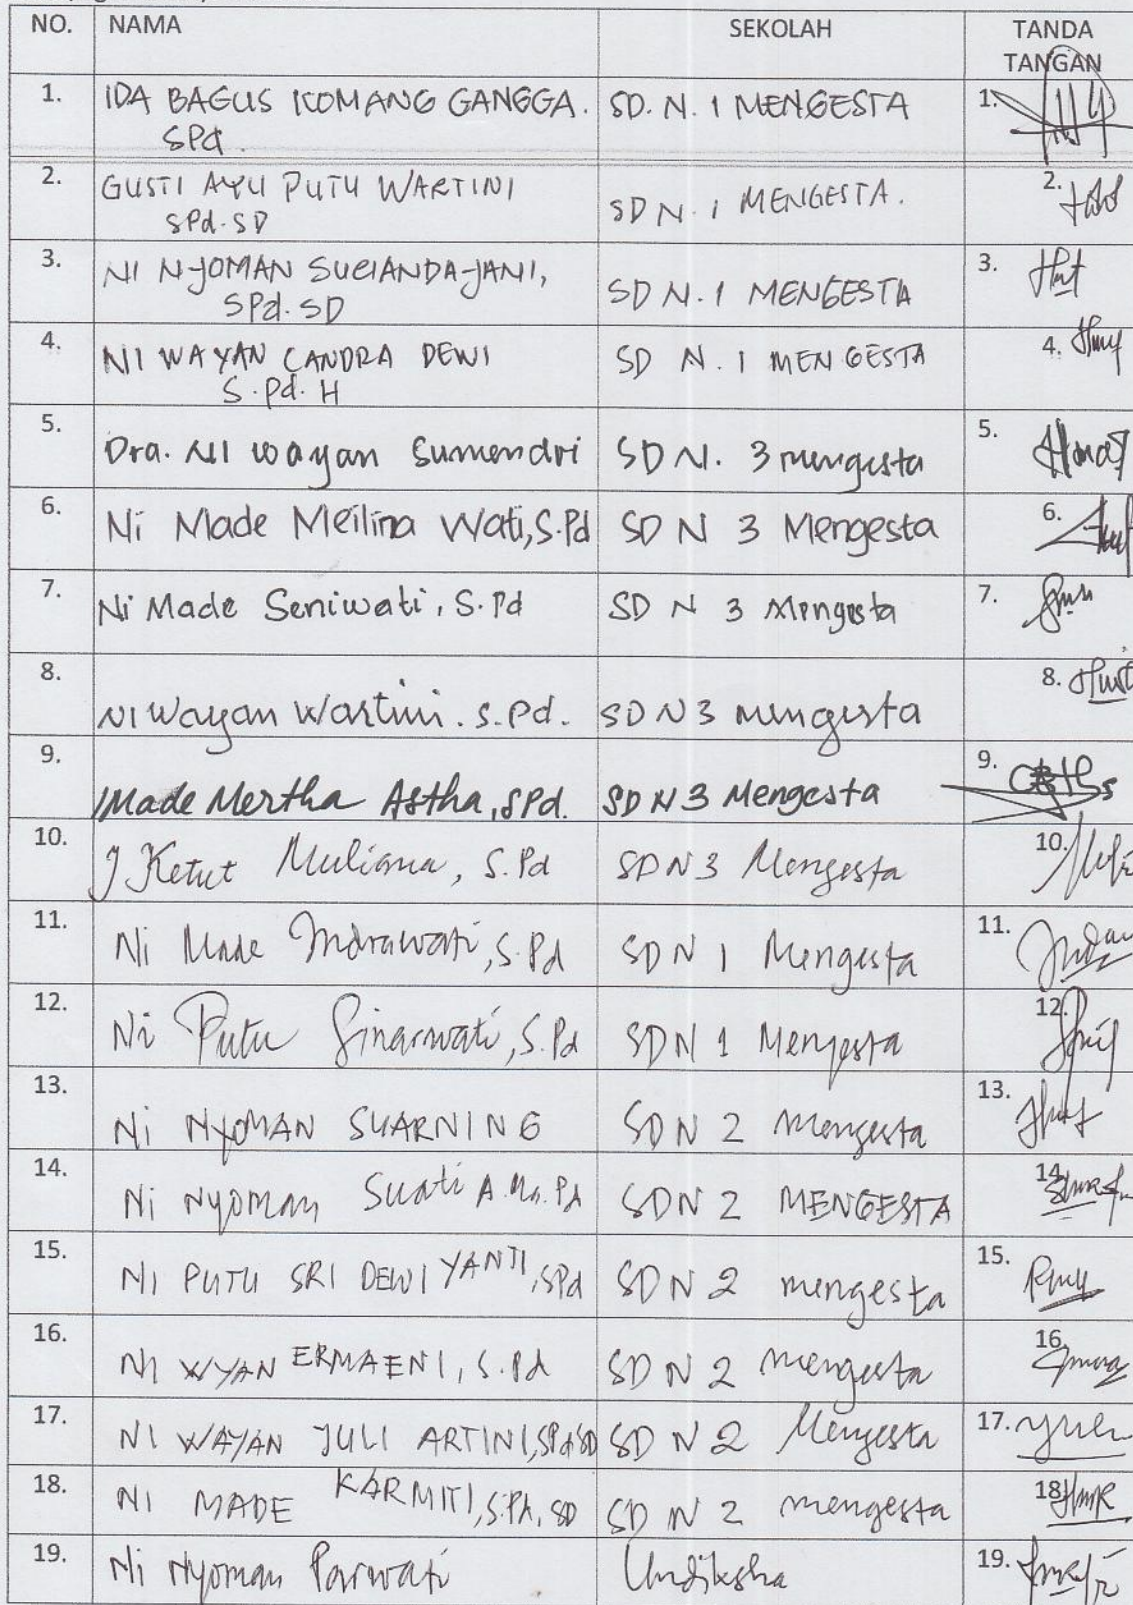 NO. NAMA SEKOLAH TANDA TANGAN
1. IDA BAGUS KOMANG GANGGA. SD. N. 1 MENGESTA 1.
SPd.
2. GUSTI AYU PUTU WARTINI SD N. 1 MENGESTA. 2.
SPd. SD
3. NI NYOMAN SUCIANDAJANI, SD N. 1 MENGESTA 3.
SPd. SD
4. NI WAYAN CANDRA DEWI SD N. 1 MENGESTA 4.
S.Pd. H
5. Dra. NI Wayan Sumendri SD N. 3 mengesta 5.
6. Ni Made Meilina Wati, S.Pd SD N 3 Mengesta 6.
7. Ni Made Seniwati, S.Pd SD N 3 Mengesta 7.
8. Ni Wayan Wartini. S.Pd. SD N 3 mengesta 8.
9. I Made Mertha Astha, SPd. SD N 3 Mengesta 9.
10. I Ketut Muliana, S.Pd SD N 3 Mengesta 10.
11. Ni Made Indrawati, S.Pd SD N 1 Mengesta 11.
12. Ni Putu Sinarwati, S.Pd SDN 1 Mengesta 12.
13. Ni NYOMAN SUARNING SD N 2 mengesta 13.
14. Ni Nyoman Suati A.Ma.Pd SDN 2 MENGESTA 14.
15. NI PUTU SRI DEWI YANTI, SPd SD N 2 mengesta 15.
16. NI WYAN ERMAENI, S.Pd SD N 2 mengesta 16.
17. NI WAYAN JULI ARTINI, SPd SD SD N 2 Mengesta 17.
18. NI MADE KARMITI, S.Pd, SD SD N 2 mengesta 18.
19. Ni Nyoman Parwati Undiksha 19.